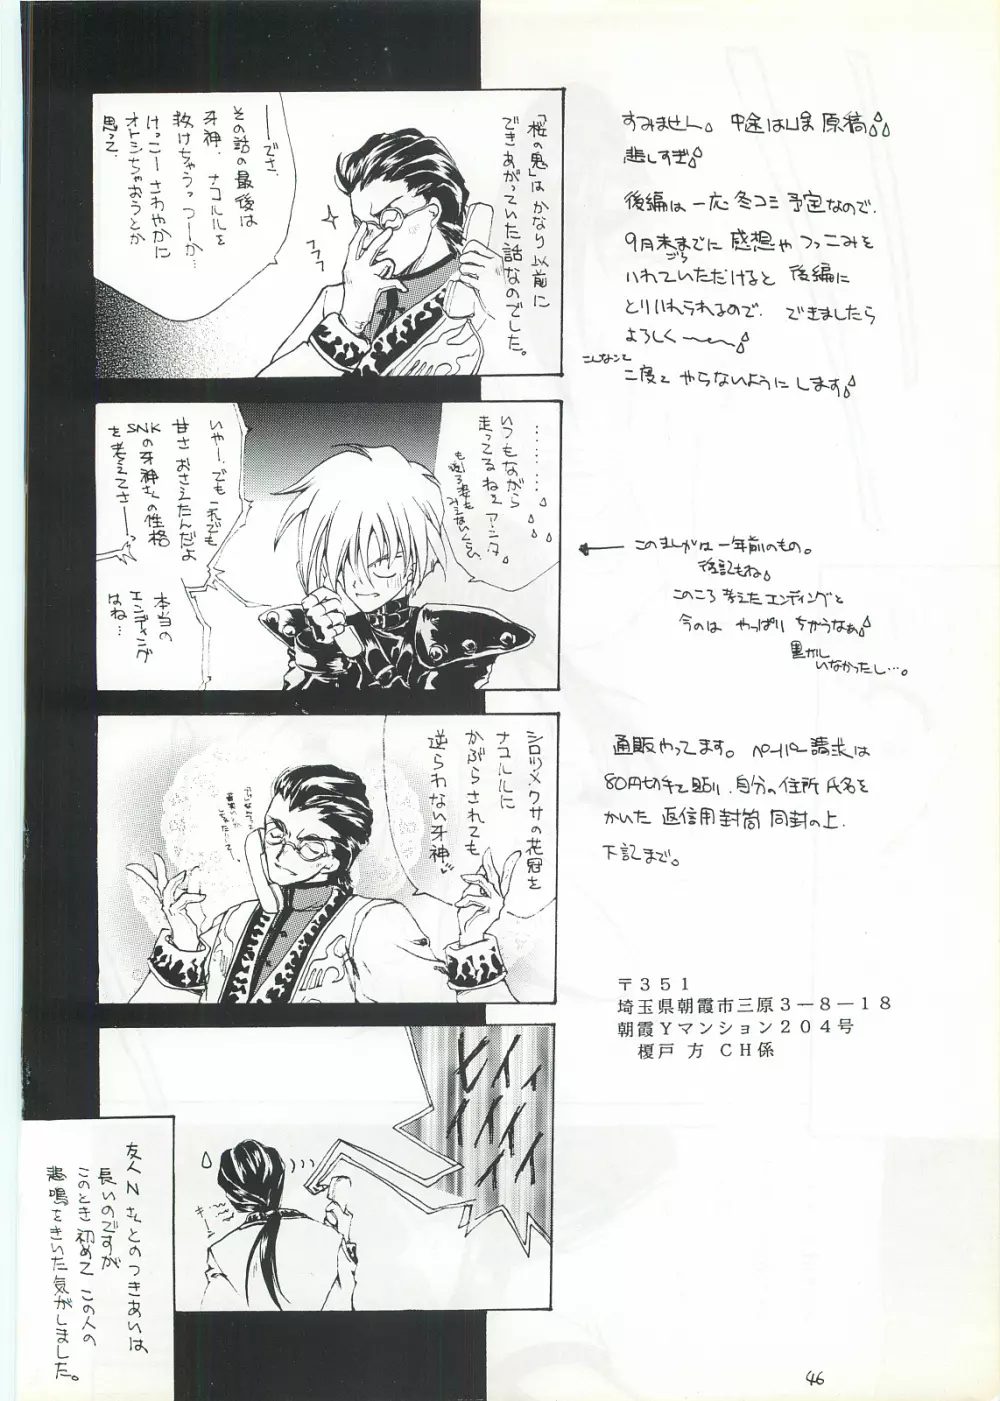 「桜の鬼」はかなり以前に
できあがっていた話なのでした。
フフフ
――でさ、
その話の最後は
牙神、ナコルルを
救けちゃうっつーか…
けっこーさわやかに
オトシちゃおうとか
思って、
………
いつもながら
走ってるねぇアンタ
いやー、でもこれでも
甘さおさえたんだよ
SNKの牙神さんの性格
を考えてさ――っ
本当の
エンディング
はね…
シロツメクサの花冠を
ナコルルに
かぶらされても
逆らわない牙神
ヒイィ
イイイ
イイ
友人Nさんとのつきあいは
長いのですが
このとき初めてこの人の
悲鳴をきいた気がしました。
すみません。中途はしぱ原稿
悲しすぎ
後編は一応冬コミ予定なので、
9月末ごろまでに感想やつっこみを
いれていただけると後編に
とりいれられるので、できましたら
よろしく〜〜
こんなこと
二度とやらないようにします
このまんがは一年前のもの。
後記もね
このころ考えたエンディングと
今のはやっぱりちがうなぁ
里がし
いなかったし…。
通販やってます。ペーパー請求は
80円切手を貼り、自分の住所氏名を
かいた返信用封筒同封の上、
下記まで。
〒351
埼玉県朝霞市三原3－8－18
朝霞Yマンション204号
榎戸 方 CH係
46